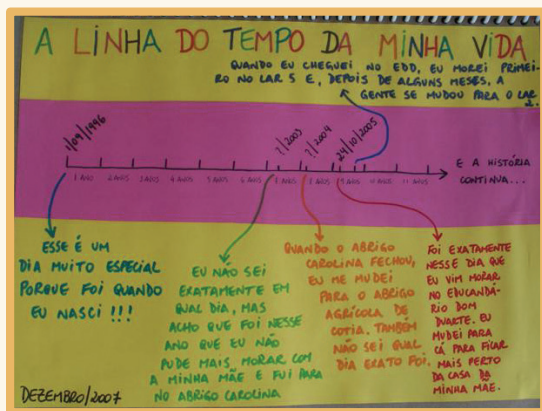 A LINHA DO TEMPO DA MINHA VIDA
QUANDO EU CHEGUEI NO EDD, EU MOREI PRIMEI-
RO NO LAR 5 E, DEPOIS DE ALGUNS MESES, A
GENTE SE MUDOU PARA O LAR
2.
1/09/1996
?/2003
?/2004
24/10/2005
1 ANO 2 ANOS 3 ANOS 4 ANOS 5 ANOS 6 ANOS 7 ANOS 8 ANOS 9 ANOS 10 ANOS 11 ANOS
E A HISTÓRIA
CONTINUA...
ESSE É UM
DIA MUITO ESPECIAL
PORQUE FOI QUANDO
EU NASCI !!!
EU NÃO SEI
EXATAMENTE EM
QUAL DIA, MAS
ACHO QUE FOI NESSE
ANO QUE EU NÃO
PUDE MAIS MORAR COM
A MINHA MÃE E FUI PARA
NO ABRIGO CAROLINA
QUANDO O ABRIGO
CAROLINA FECHOU,
EU ME MUDEI
PARA O ABRIGO
AGRÍCOLA DE
COTIA. TAMBÉM
NÃO SEI QUAL
DIA EXATO FOI.
FOI EXATAMENTE
NESSE DIA QUE
EU VIM MORAR
NO EDUCANDÁ-
RIO DOM
DUARTE. EU
MUDEI PARA
CÁ PARA FICAR
MAIS PERTO
DA CASA DA
MINHA MÃE.
DEZEMBRO/2007